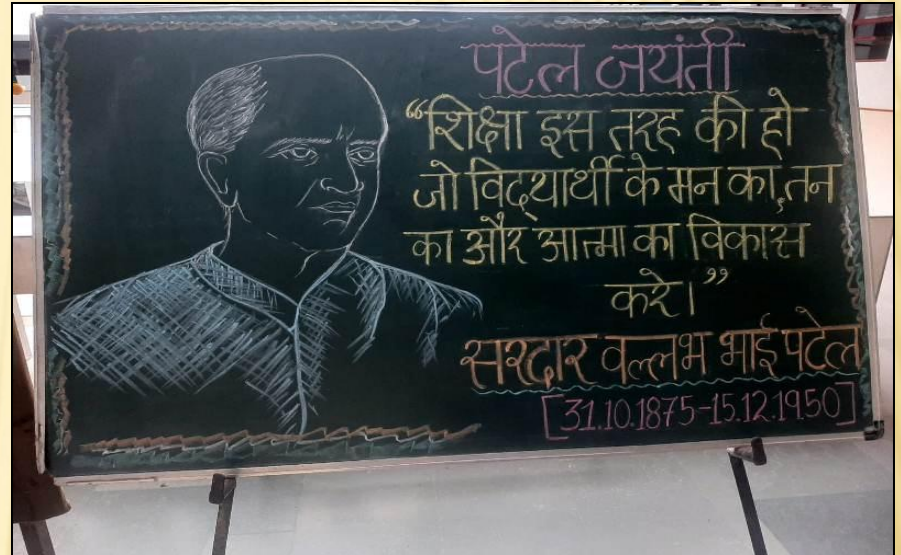 पटेल जयंती
“शिक्षा इस तरह की हो
जो विद्यार्थी के मन का,तन
का और आत्मा का विकास
करे।”
सरदार वल्लभ भाई पटेल
[31.10.1875-15.12.1950]